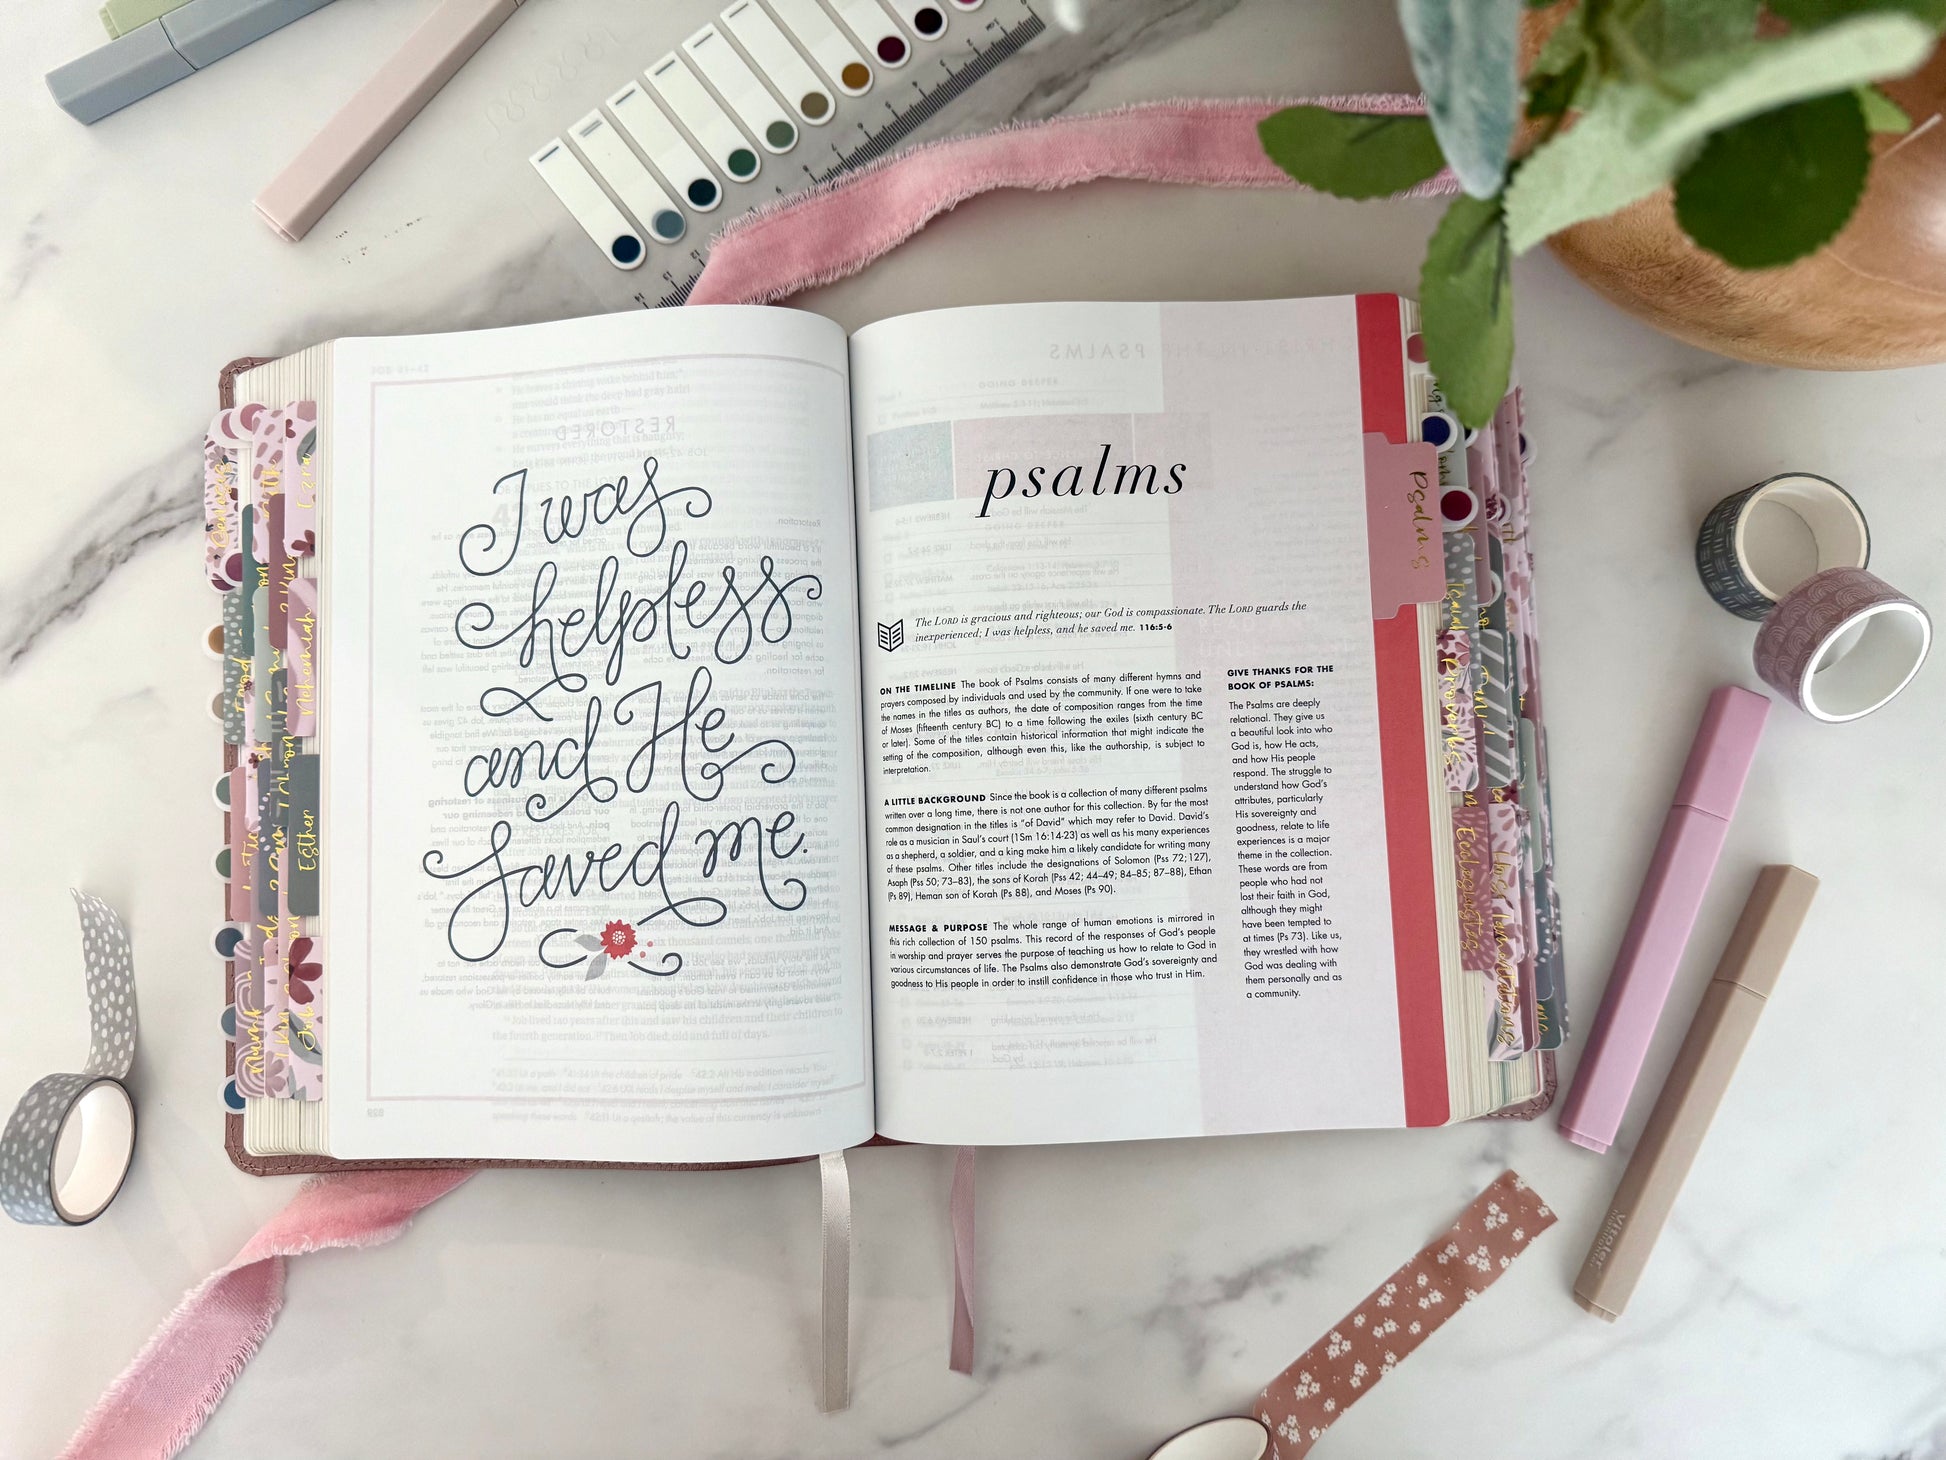 I was
helpless
and He
saved me.
psalms
The LORD is gracious and righteous; our God is compassionate. The LORD guards the
inexperienced; I was helpless, and he saved me. 116:5-6
ON THE TIMELINE The book of Psalms consists of many different hymns and
prayers composed by individuals and used by the community. If one were to take
the names in the titles as authors, the date of composition ranges from the time
of Moses (fifteenth century BC) to a time following the exiles (sixth century BC
or later). Some of the titles contain historical information that might indicate the
setting of the composition, although even this, like the authorship, is subject to
interpretation.
A LITTLE BACKGROUND Since the book is a collection of many different psalms
written over a long time, there is not one author for this collection. By far the most
common designation in the titles is "of David" which may refer to David. David's
role as a musician in Saul's court (1Sm 16:14-23) as well as his many experiences
as a shepherd, a soldier, and a king make him a likely candidate for writing many
of these psalms. Other titles include the designations of Solomon (Pss 72; 127),
Asaph (Pss 50; 73–83), the sons of Korah (Pss 42; 44–49; 84–85; 87–88), Ethan
(Ps 89), Heman son of Korah (Ps 88), and Moses (Ps 90).
MESSAGE & PURPOSE The whole range of human emotions is mirrored in
this rich collection of 150 psalms. This record of the responses of God's people
in worship and prayer serves the purpose of teaching us how to relate to God in
various circumstances of life. The Psalms also demonstrate God's sovereignty and
goodness to His people in order to instill confidence in those who trust in Him.
GIVE THANKS FOR THE
BOOK OF PSALMS:
The Psalms are deeply
relational. They give us
a beautiful look into who
God is, how He acts,
and how His people
respond. The struggle to
understand how God's
attributes, particularly
His sovereignty and
goodness, relate to life
experiences is a major
theme in the collection.
These words are from
people who had not
lost their faith in God,
although they might
have been tempted to
at times (Ps 73). Like us,
they wrestled with how
God was dealing with
them personally and as
a community.
Psalms
Proverbs
Ecclesiastes
Lamentations
Genesis
Ezra
Nehemiah
Esther
Job